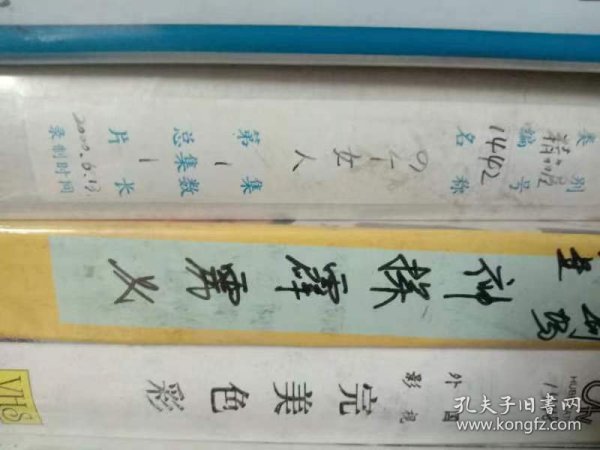 类别
编号 1442
名称 九一女人
第1集
总集数1
片长
录制时间 2000.6.13
神探霹雳火
外国影视
完美色彩
VHS
孔夫子旧书网
www.kongfz.com